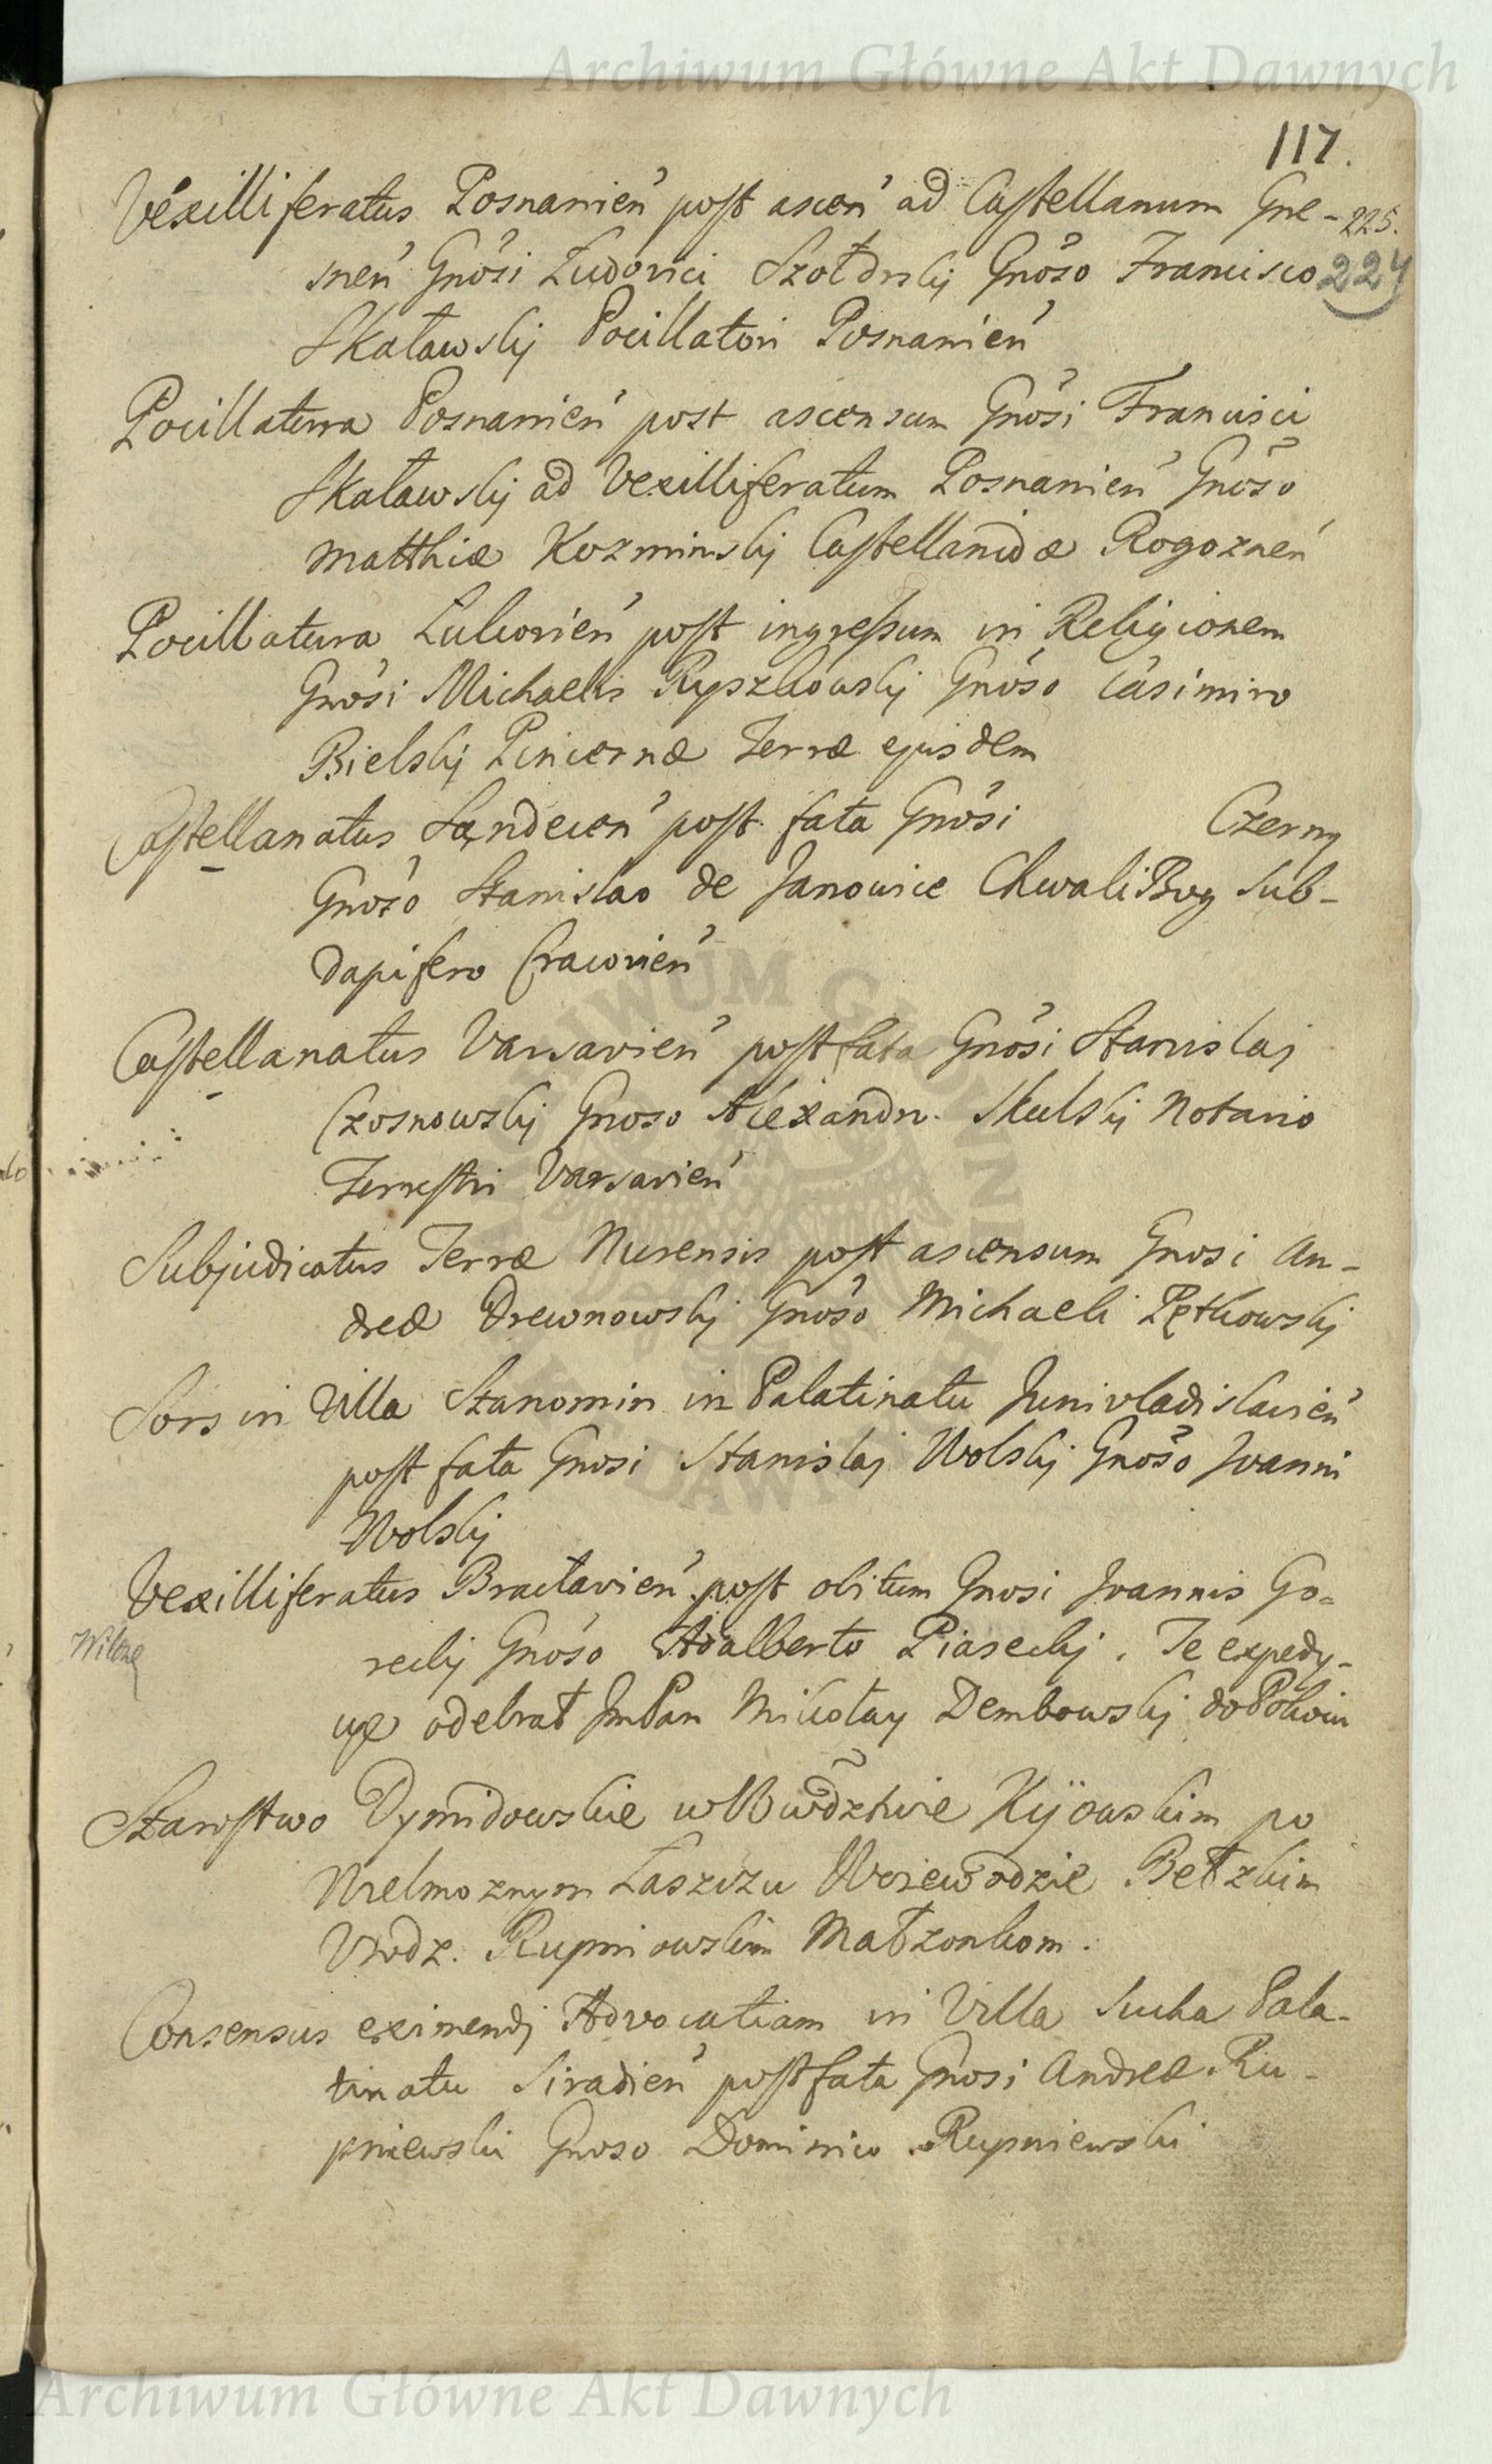 Archiwum Główne Akt Dawnych
117.
Vexilliferatus Posnanień post ascen̄ ad Castellanum Gne-
225.
snen̄ Gnosi Ludovici Szołdrskj Gnoso Francisco
224
Skaławskj Pocillatori Posnanień
Pocillatura Posnanień post ascensum Gnosi Francisci
Skaławskj ad Vexilliferatum Posnanień Gnoso
Matthiæ Kozminskj Castellanidæ Rogoznen̄
Pocillatura Lukovień post ingressum in Religionem
Gnosi Michaelis Ryszkowskj Gnoso Casimiro
Bielskj Pincernæ Terræ ejusdem
Castellanatus Sandecen̄ post fata Gnosi Czerny
Gnoso Stanislao de Janowice ChwaliBog Sub-
dapifero Cracovień
Castellanatus Varsavień post fata Gnosi Stanislaj
Czosnowskj Gnoso Alexandr. Skulskj Notario
Terrestri Varsavień
Subjudicatus Terræ Nurensis post ascensum Gnosi An-
dreæ Drewnowskj Gnoso Michaeli Pętkowskj
Sors in Villa Stanomin in Palatinatu Junivladislavień
post fata Gnosi Stanislaj Wolskj Gnoso Joanni
Wolskj
Vexilliferatus Bractavień post obitum Gnosi Joannis Go-
Wilczę
reckj Gnoso Adalberto Piaseckj. Te expedy-
cye odebrał JmPan Mikołay Dembowskj do
Starostwo Dymidowskie w Wwdztwie Kijowskim po
Wielmoznym Łaszczu Woiewodzie Bełzkim
Vrodz. Rupniowskim Małzonkom.
Consensus eximendj Advocatiam in Villa Sucha Pala-
tinatu Siradień post fata Gnosi Andreæ Ru-
pniewski Gnoso Dominico Rupniewski
Archiwum Główne Akt Dawnych